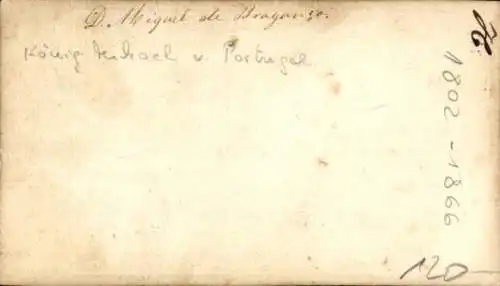 D. Miguel de Braganza.
König Michael v. Portugal
1802 - 1866
120-